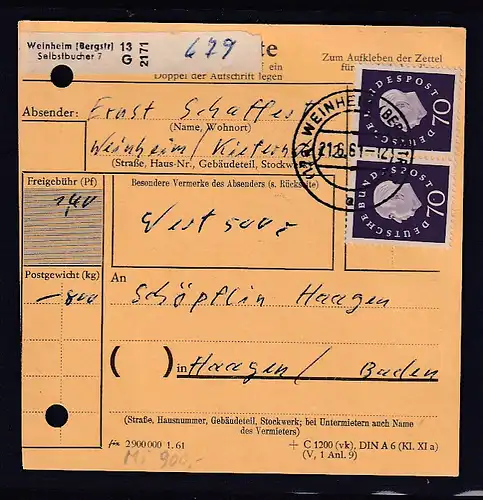 Weinheim (Bergstr) 13
Selbstbucher 7 G 2171
679
te
f ein
Doppel der Aufschrift legen
Zum Aufkleben der Zettel
Absender: Ernst
(Name, Wohnort)
Weinheim /
(Straße, Haus-Nr., Gebäudeteil, Stockwerk
WEINHEIM (BER
21.6.61-12
a
DEUTSCHE BUNDESPOST
70
DEUTSCHE BUNDESPOST
70
Freigebühr (Pf)
1,40
Besondere Vermerke des Absenders (s. Rückseite)
Wert 500,-
Postgewicht (kg)
-800
An
Schöpflin Haagen
( ) in Haagen / Baden
(Straße, Hausnummer, Gebäudeteil, Stockwerk; bei Untermietern auch Name
des Vermieters)
2900000 1.61
+ C 1200 (vk), DIN A 6 (Kl. XI a)
(V, 1 Anl. 9)
Mi 900,-